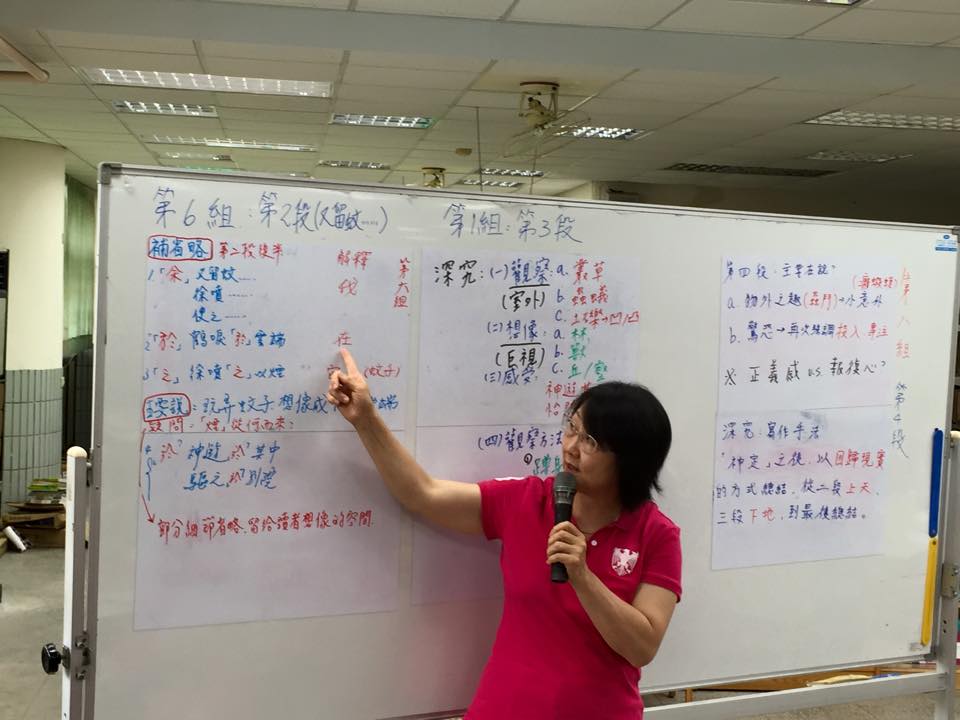 第6組:第2段(又留蚊……)
補省略 第二段後半 解釋
1.「余」又留蚊…… 我
徐噴……
使之……
2.「於」鶴唳「於」雲端 在
3.「之」徐噴「之」以煙 (蚊子)
第六組
主要說:玩弄蚊子.想像成
疑問:「煙」從何而來?
「於」神遊「於」其中
驅之「於」別院
部分細節省略,留給讀者想像的空間.
第1組:第3段
深究:(一)觀察:a.叢草
(室外) b.蟲蟻
c.土礫→凸/凹
(二)想像:a.林
(巨視) b.獸
(三)感受: c.丘/壑
神遊
怡
(四)觀察方法
第四段:主要在說?
(癩蝦蟆)
a.物外之趣(延門)→小意外
b.驚恐→再次強調投入、專注
※ 正義感 v.s. 報復心?
第八組
第4段
深究:寫作手法
「神定」之後,以回歸現實
的方式總結,從二段上天、
三段下地,到最後總結。